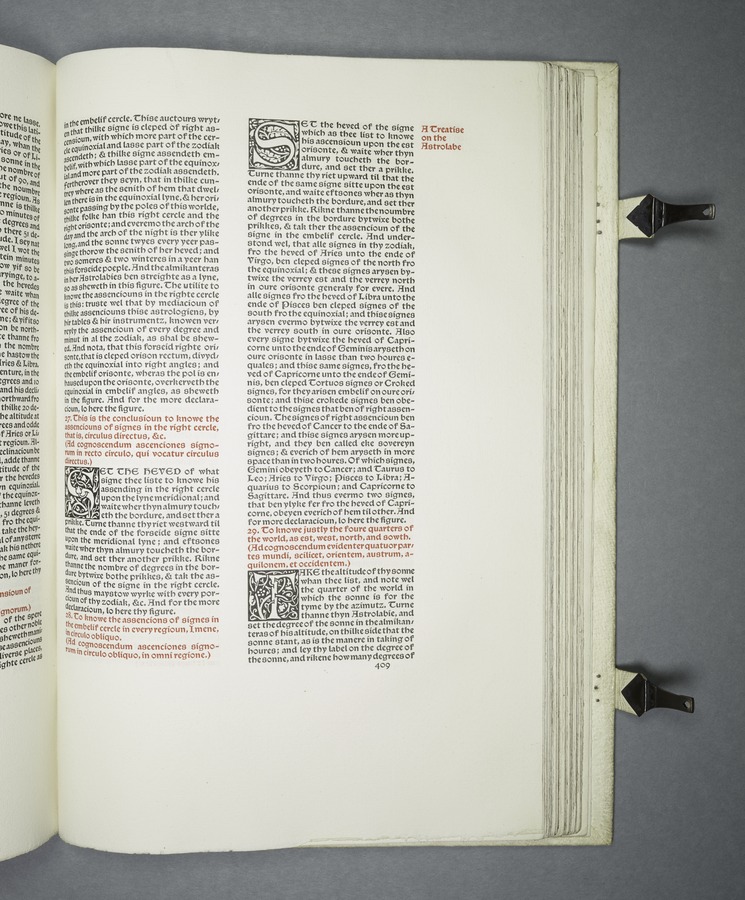 ore ne lasse,
owe this lati-
titude of the
ay, whan the
ries or of Li-
sonne in the
he nombre of
ut of 90, and
the noumbre
regioun. As
nne is thilke
0 minutes of
degrees and
there 51 de-
ude. I sey nat
wel I wot the
tein minutes
ow yif so be
the heredes
waite whan
egree of the
ee of his de-
me; & yif it so
on be north-
e thanne fro
the nombre
hastow the
Aries & Libra.
enture, in the
egrees and 10
and his decli-
northward fro
thilke 20 de-
he altitude at
rees and odde
f Aries or Li-
t regioun. Al-
eclinacioun be
, adde thanne
titude of the
r the heredes
equinoxial.
the equinox-
thanne leveth
, 51 degrees &
fro the equi-
take the hey-
of any sterre
ak his nethere
he same equi-
he maner for-
on, lo here thy
nsioun of
gnorum.)
of the spere
es other noble
sheweth manie
se ascencioun
diverse places,
ighte cercle as
in the embelif cercle. Thise auctours wryt-
en that thilke signe is cleped of right as-
censioun, with which more part of the cer-
cle equinoxial and lasse part of the zodiak
ascendeth; & thilke signe assendeth em-
belif, with which lasse part of the equinox-
ial and more part of the zodiak assendeth.
Fertherover they seyn, that in thilke cun-
trey where as the senith of hem that dwel-
len there is in the equinoxial lyne, & her ori-
sonte passing by the poles of this worlde,
thilke folke han this right cercle and the
right orisonte; and everemo the arch of the
day and the arch of the night is ther ylike
long, and the sonne twyes every yeer pas-
singe thorow the senith of her heved; and
two someres & two winteres in a yeer han
this forseide poeple. And the almikanteras
in her Astrolabies ben streighte as a lyne,
so as sheweth in this figure. The utilite to
knowe the assenciouns in the righte cercle
is this: truste wel that by mediacioun of
thilke assenciouns thise astrologiens, by
hir tables & hir instrumentz, knowen ver-
reyly the assencioun of every degree and
minut in al the zodiak, as shal be shew-
ed. And nota, that this forseid righte ori-
sonte, that is cleped orison rectum, divyd-
eth the equinoxial into right angles; and
the embelif orisonte, wheras the pol is en-
haused upon the orisonte, overkerveth the
equinoxial in embelif angles, as sheweth
in the figure. And for the more declara-
cioun, lo here the figure.
27. This is the conclusioun to knowe the
assenciouns of signes in the right cercle,
that is, circulus directus, &c.
(Ad cognoscendum ascenciones signo-
rum in recto circulo, qui vocatur circulus
directus.)
SET THE HEVED of what
signe thee liste to knowe his
assending in the right cercle
upon the lyne meridional; and
waite wher thyn almury touch-
eth the bordure, and set ther a
prikke. Turne thanne thy riet westward til
that the ende of the forseide signe sitte
upon the meridional lyne; and eftsones
waite wher thyn almury toucheth the bor-
dure, and set ther another prikke. Rikne
thanne the nombre of degrees in the bor-
dure bytwixe bothe prikkes, & tak the as-
sencioun of the signe in the right cercle.
And thus maystow wyrke with every por-
cioun of thy zodiak, &c. And for the more
declaracioun, lo here thy figure.
28. To knowe the assencions of signes in
the embelif cercle in every regioun, I mene,
in circulo obliquo.
(Ad cognoscendum ascenciones signo-
rum in circulo obliquo, in omni regione.)
SET the heved of the signe
which as thee list to knowe
his ascensioun upon the est
orisonte, & waite wher thyn
almury toucheth the bor-
dure, and set ther a prikke.
Turne thanne thy riet upward til that the
ende of the same signe sitte upon the est
orisonte, and waite eftsones wher as thyn
almury toucheth the bordure, and set ther
another prikke. Rikne thanne the noumbre
of degrees in the bordure bytwixe bothe
prikkes, & tak ther the assencioun of the
signe in the embelif cercle. And under-
stond wel, that alle signes in thy zodiak,
fro the heved of Aries unto the ende of
Virgo, ben cleped signes of the north fro
the equinoxial; & these signes arysen by-
twixe the verrey est and the verrey north
in oure orisonte generaly for evere. And
alle signes fro the heved of Libra unto the
ende of Pisces ben cleped signes of the
south fro the equinoxial; and thise signes
arysen evermo bytwixe the verrey est and
the verrey south in oure orisonte. Also
every signe bytwixe the heved of Capri-
corne unto the ende of Geminis aryseth on
oure orisonte in lasse than two houres e-
quales; and thise same signes, fro the he-
ved of Capricorne unto the ende of Gemi-
nis, ben cleped Tortuos signes or Croked
signes, for they arisen embelif on oure ori-
sonte; and thise crokede signes ben obe-
dient to the signes that ben of right assen-
cioun. The signes of right assencioun ben
fro the heved of Cancer to the ende of Sa-
gittare; and thise signes arysen more up-
right, and they ben called eke sovereyn
signes; & everich of hem aryseth in more
space than in two houres. Of which signes,
Gemini obeyeth to Cancer; and Taurus to
Leo; Aries to Virgo; Pisces to Libra; A-
quarius to Scorpioun; and Capricorne to
Sagittare. And thus evermo two signes,
that ben ylyke fer fro the heved of Capri-
corne, obeyen everich of hem til other. And
for more declaracioun, lo here the figure.
29. To knowe justly the foure quarters of
the world, as est, west, north, and sowth.
(Ad cognoscendum evidenter quatuor par-
tes mundi, scilicet, orientem, austrum, a-
quilonem, et occidentem.)
TAKE the altitude of thy sonne
whan thee list, and note wel
the quarter of the world in
which the sonne is for the
tyme by the azimutz. Turne
thanne thyn Astrolabie, and
set the degree of the sonne in the almikan-
teras of his altitude, on thilke side that the
sonne stant, as is the manere in taking of
houres; and ley thy label on the degree of
the sonne, and rikene how many degrees of
409
A Treatise
on the
Astrolabe